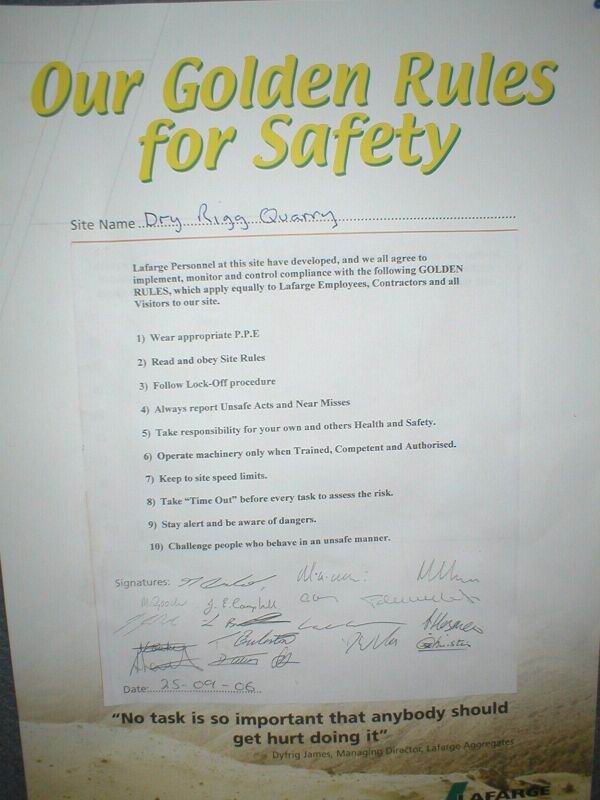 Our Golden Rules
for Safety
Site Name Dry Rigg Quarry
Lafarge Personnel at this site have developed, and we all agree to
implement, monitor and control compliance with the following GOLDEN
RULES, which apply equally to Lafarge Employees, Contractors and all
Visitors to our site.
1) Wear appropriate P.P.E
2) Read and obey Site Rules
3) Follow Lock-Off procedure
4) Always report Unsafe Acts and Near Misses
5) Take responsibility for your own and others Health and Safety.
6) Operate machinery only when Trained, Competent and Authorised.
7) Keep to site speed limits.
8) Take “Time Out” before every task to assess the risk.
9) Stay alert and be aware of dangers.
10) Challenge people who behave in an unsafe manner.
Signatures:
J. E. Campbell
Date: 25-09-06
“No task is so important that anybody should
get hurt doing it”
Dyfrig James, Managing Director, Lafarge Aggregates
LAFARGE